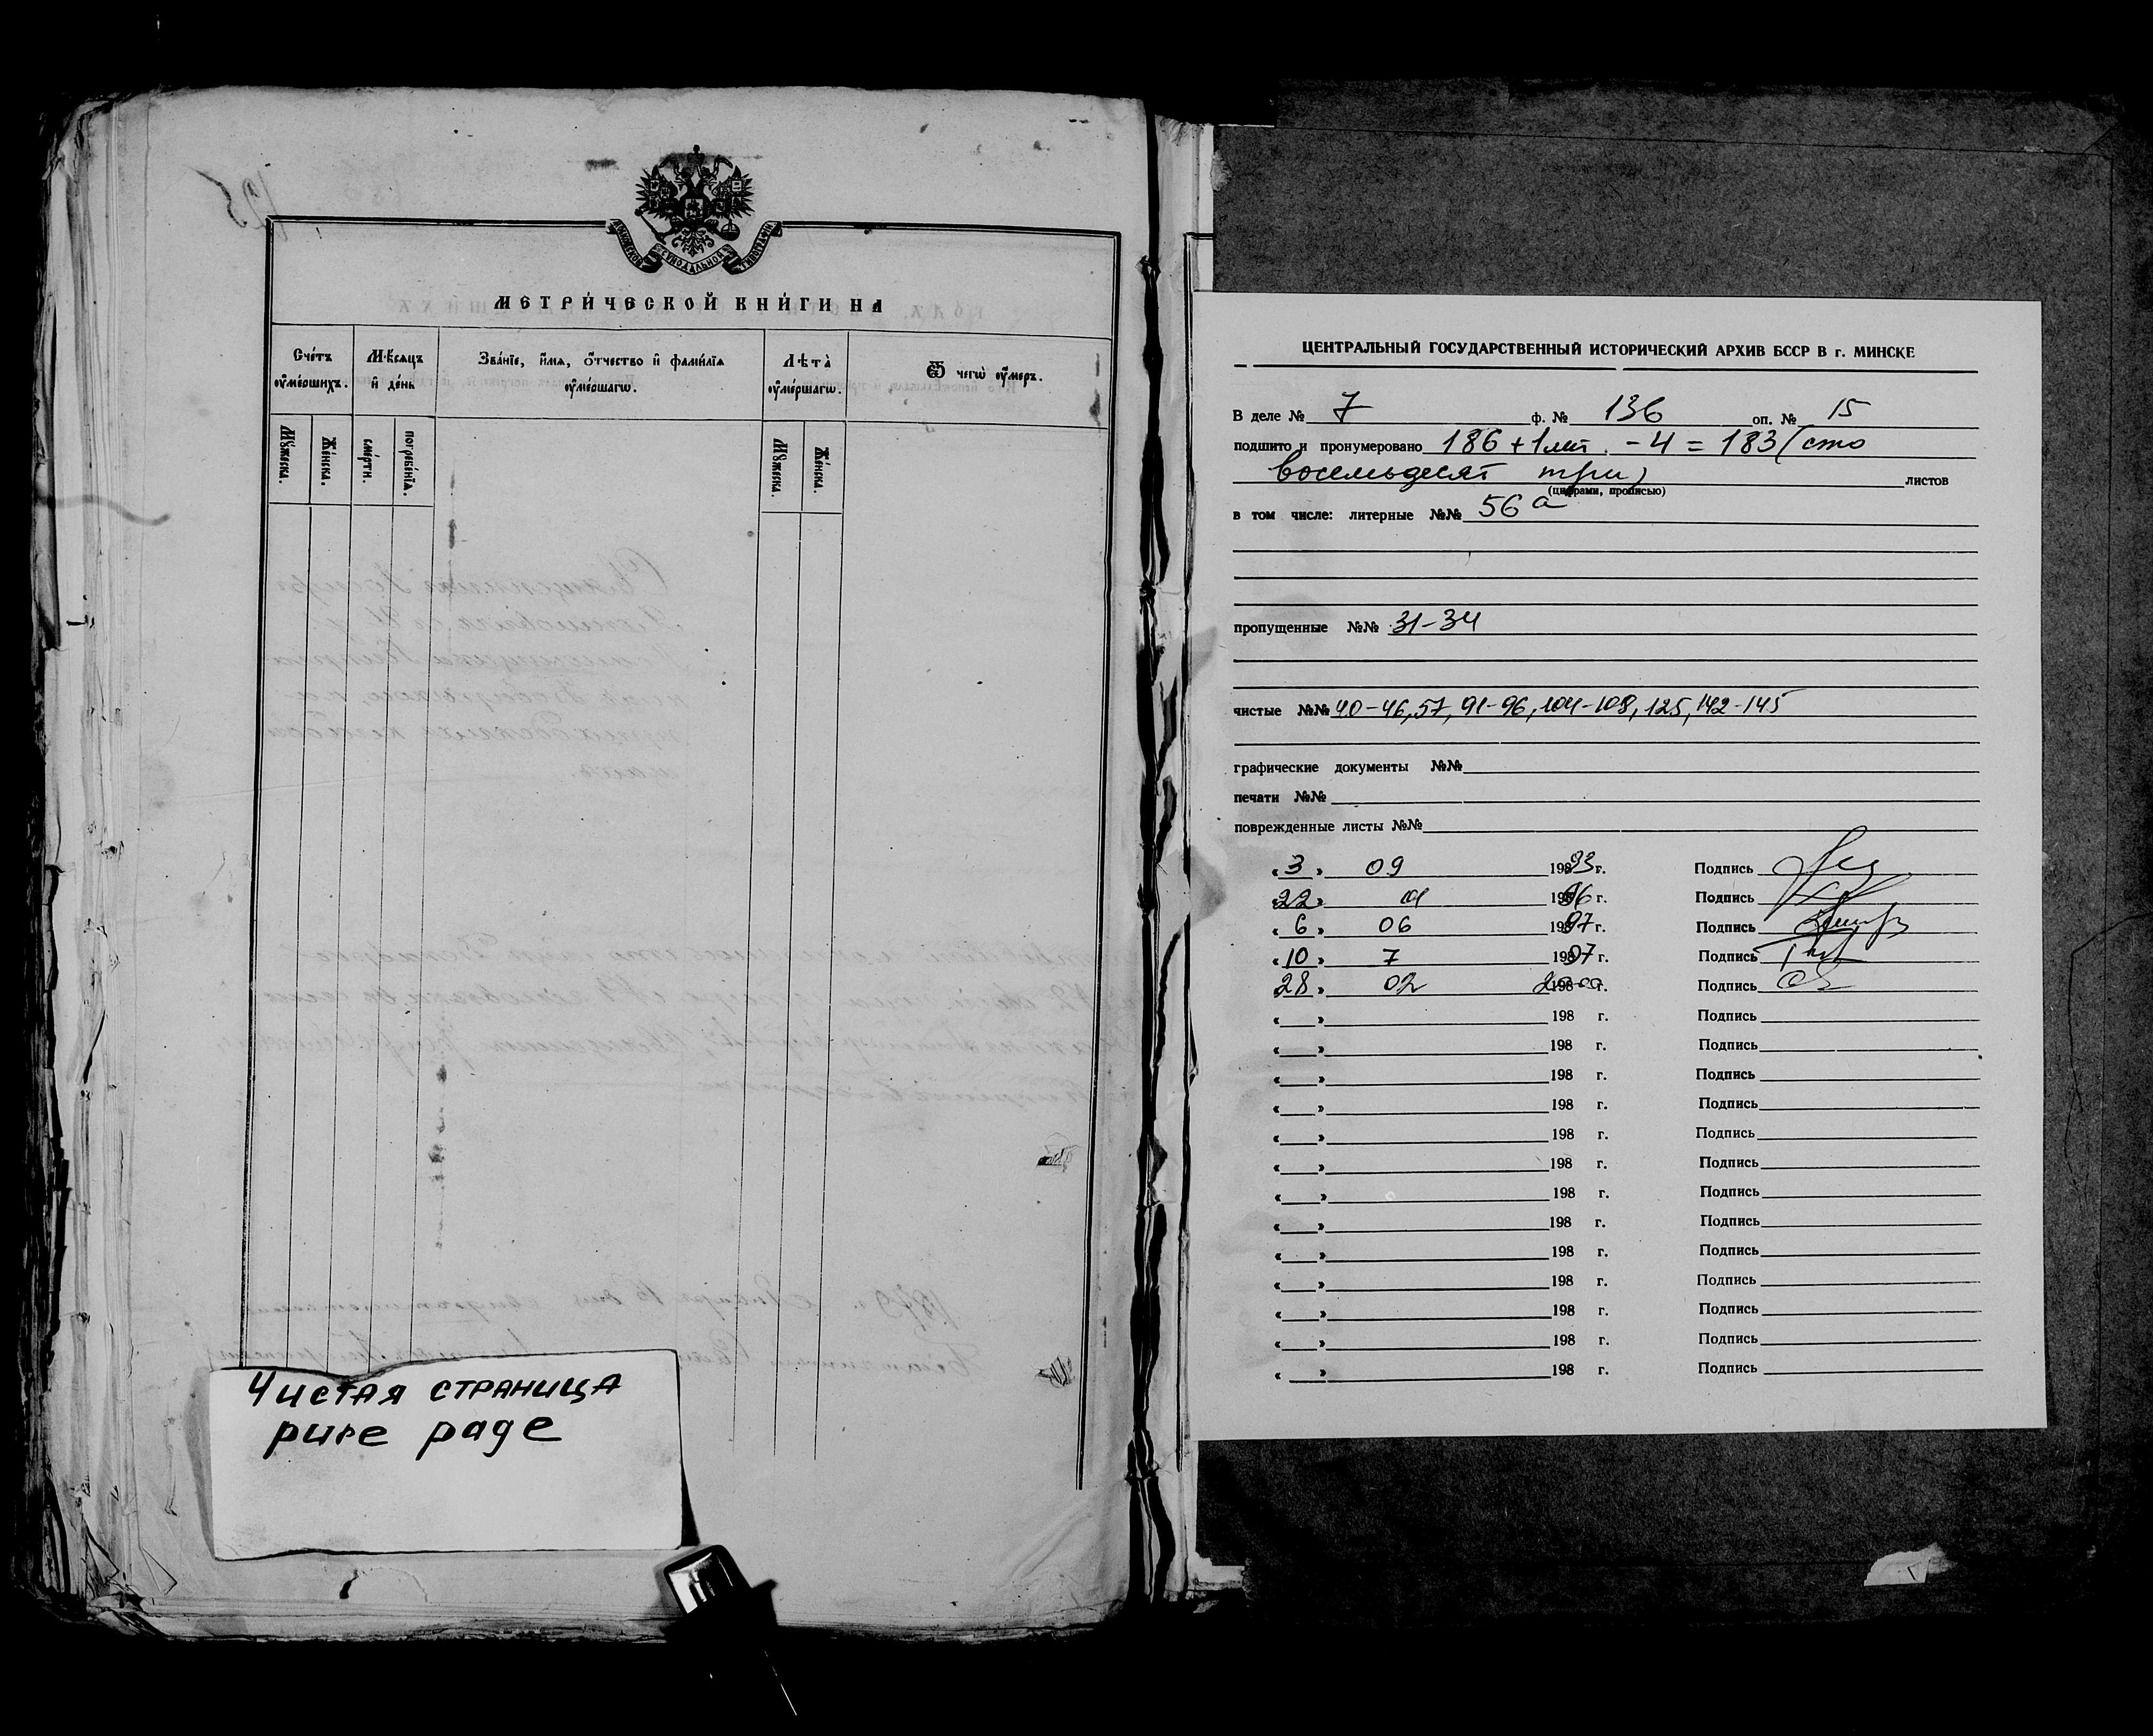 МОСКОВСКОЙ СѴНОДАЛЬНОЙ ТИПОГРАФІИ
МЕТРИ́ЧЕСКОЙ КНИ́ГИ НА
Счéтъ ᲂу҆мéршихъ.
Мѣ́сяцъ и҆ дéнь
Звáнїе, и҆́мя, ѻ҆́тчество и҆ фами́лїя ᲂу҆мéршагѡ.
Лѣ́та ᲂу҆мéршагѡ.
Ѿ чегѡ̀ ᲂу҆́меръ.
Мꙋ́жеска.
Жéнска.
смéрти.
погребéнїя.
Мꙋ́жеска.
Жéнска.
Чистая страница
pure page
ЦЕНТРАЛЬНЫЙ ГОСУДАРСТВЕННЫЙ ИСТОРИЧЕСКИЙ АРХИВ БССР В г. МИНСКЕ
В деле № 7 ф. № 136 оп. № 15
подшито и пронумеровано 186 + 1 лит. - 4 = 183 (сто
восемьдесят три) листов
(цифрами, прописью)
в том числе: литерные №№ 56а
пропущенные №№ 31-34
чистые №№ 40-46, 57, 91-96, 104-108, 125, 142-145
графические документы №№
печати №№
поврежденные листы №№
«3» 09 19893 г. Подпись
«22» 01 19896 г. Подпись
«6» 06 19897 г. Подпись
«10» 7 19897 г. Подпись
«28» 02 2000 г. Подпись
« » 198 г. Подпись
« » 198 г. Подпись
« » 198 г. Подпись
« » 198 г. Подпись
« » 198 г. Подпись
« » 198 г. Подпись
« » 198 г. Подпись
« » 198 г. Подпись
« » 198 г. Подпись
« » 198 г. Подпись
« » 198 г. Подпись
« » 198 г. Подпись
« » 198 г. Подпись